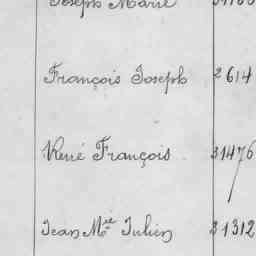 Joseph Marie
François Joseph 2614
René François 31476
Jean Mie Julien 31312